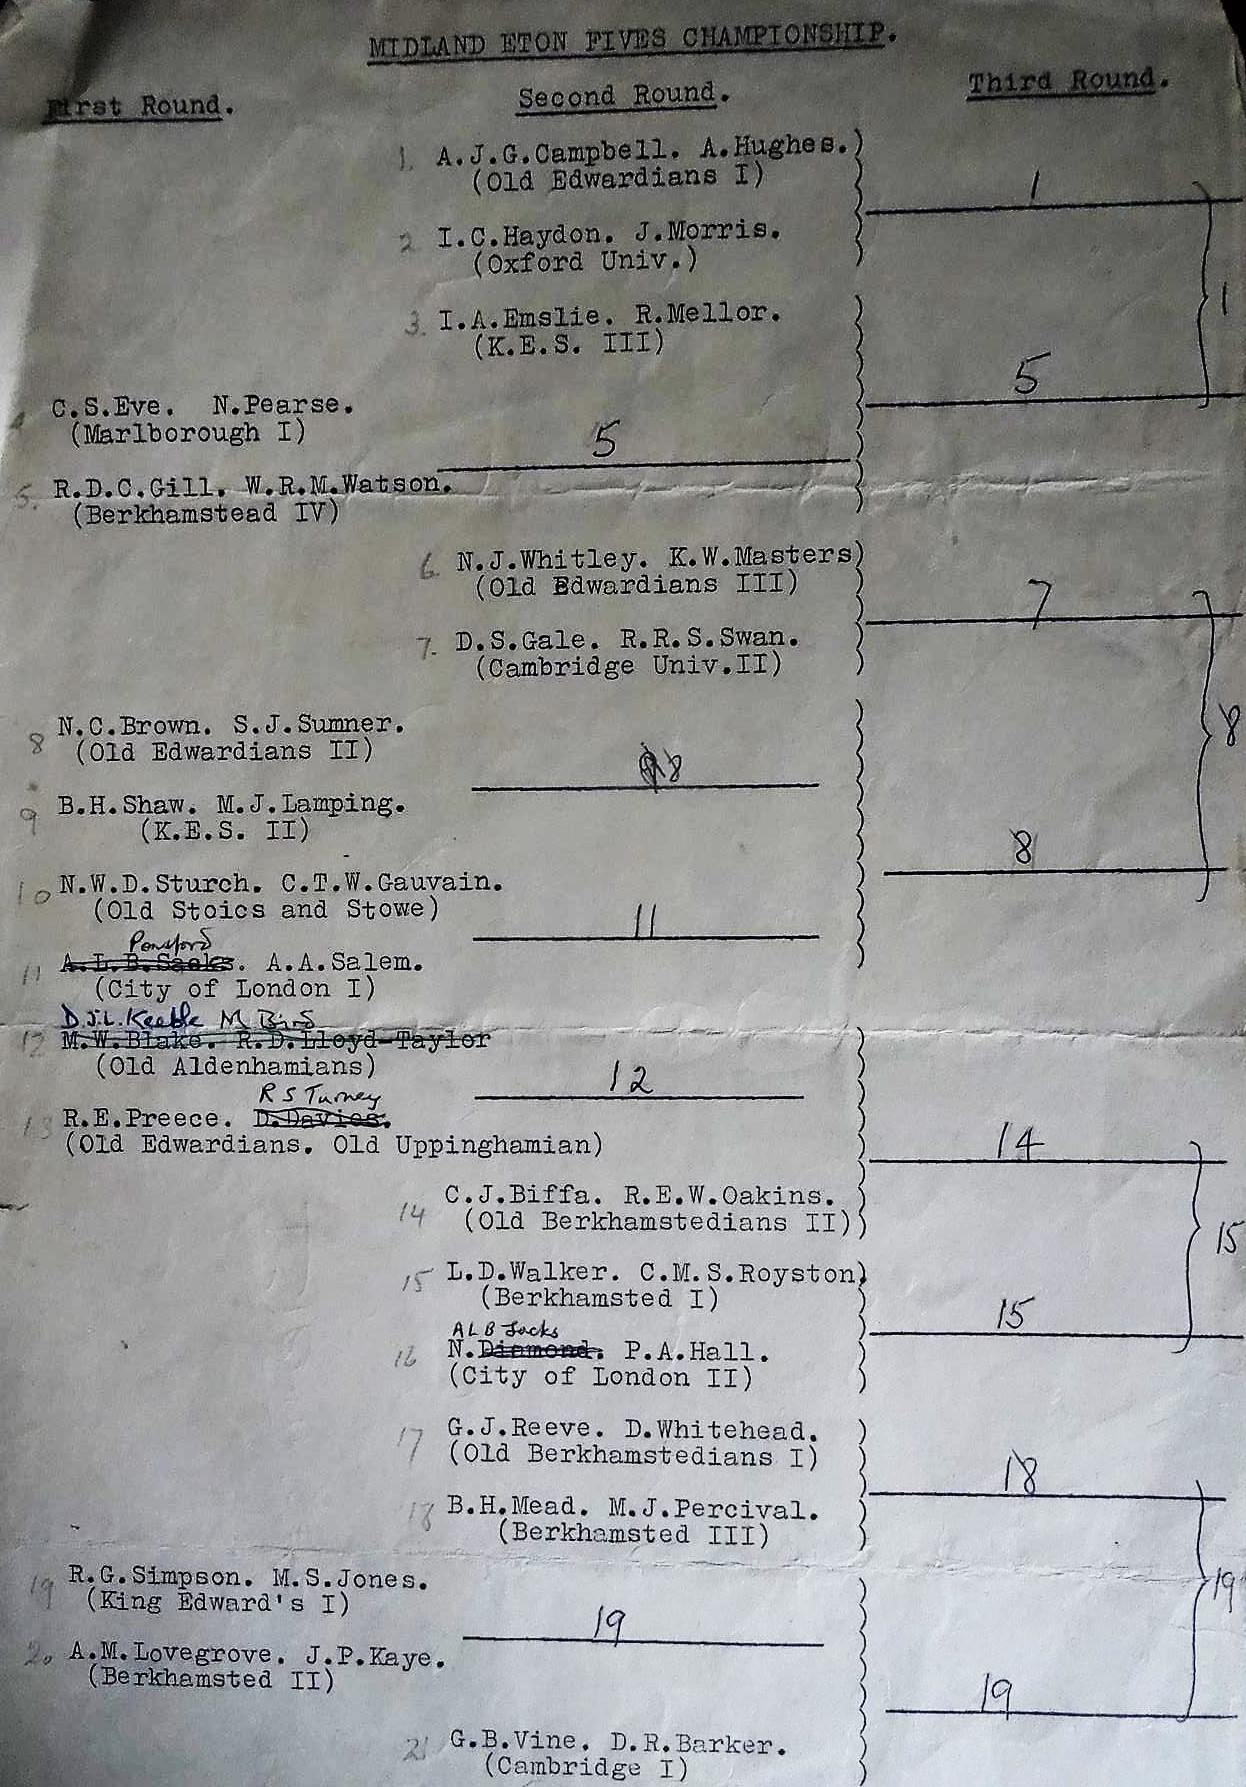 MIDLAND ETON FIVES CHAMPIONSHIP.
First Round.
Second Round.
Third Round.
1. A.J.G.Campbell. A.Hughes.)
(Old Edwardians I)
1
2 I.C.Haydon. J.Morris.
(Oxford Univ.)
1
3. I.A.Emslie. R.Mellor.
(K.E.S. III)
5
C.S.Eve. N.Pearse.
(Marlborough I)
5
5. R.D.C.Gill. W.R.M.Watson.
(Berkhamstead IV)
6 N.J.Whitley. K.W.Masters)
(Old Edwardians III)
7
7. D.S.Gale. R.R.S.Swan.
(Cambridge Univ.II)
8
8 N.C.Brown. S.J.Sumner.
(Old Edwardians II)
8
9 B.H.Shaw. M.J.Lamping.
(K.E.S. II)
8
10 N.W.D.Sturch. C.T.W.Gauvain.
(Old Stoics and Stowe)
11
Ponsford
11 A.L.B.Sacks. A.A.Salem.
(City of London I)
D.J.L. Keeble M Bird
12 M.W.Blake. R.D.Lloyd-Taylor
(Old Aldenhamians)
12
R S Turney
13 R.E.Preece. D.Davies.
(Old Edwardians. Old Uppinghamian)
14
14 C.J.Biffa. R.E.W.Oakins.
(Old Berkhamstedians II)
15
15 L.D.Walker. C.M.S.Royston)
(Berkhamsted I)
15
A L B Sacks
16 N.Diamond. P.A.Hall.
(City of London II)
17 G.J.Reeve. D.Whitehead.
(Old Berkhamstedians I)
18
18 B.H.Mead. M.J.Percival.
(Berkhamsted III)
19 R.G.Simpson. M.S.Jones.
(King Edward's I)
19
19
20 A.M.Lovegrove. J.P.Kaye.
(Berkhamsted II)
19
21 G.B.Vine. D.R.Barker.
(Cambridge I)